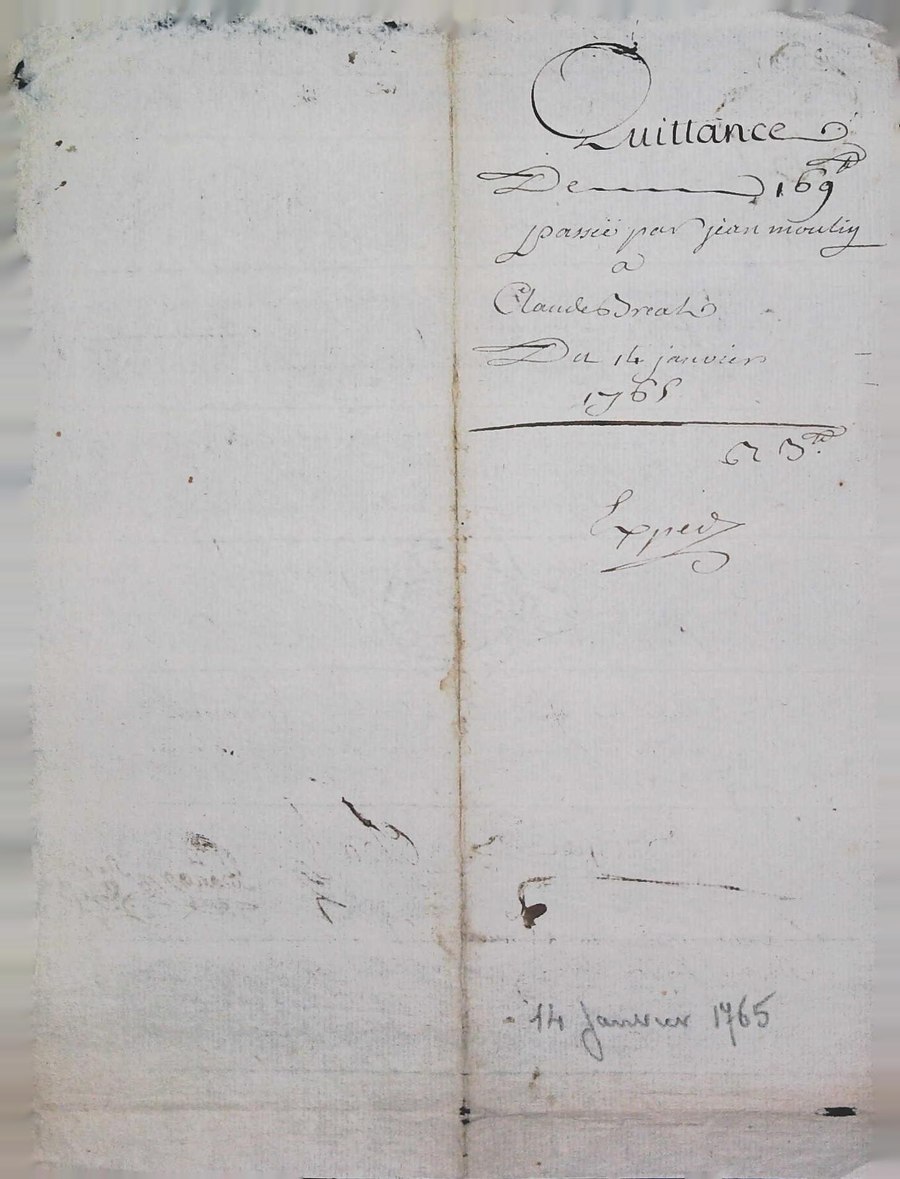 Quittance
De 169 ₶
passé par jean moulin
a
Claude Breah
Du 14 janvier
1765
3 ₶
Exped
14 Janvier 1765